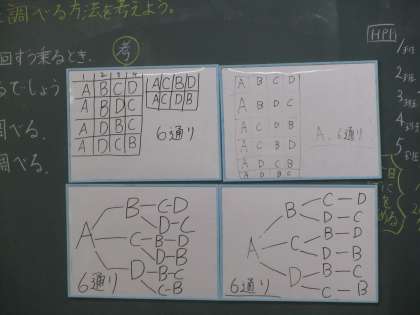 調べる方法を考えよう。
回ずつ乗るとき、
考
るでしょう
調べる。
調べる。
HP1
1班
2班
3班
4班
5班
1 2 3 4
A B C D
A B D C
A D B C
A D C B
A C B D
A C D B
6通り
A B C D
A B D C
A C D B
A C B D
A D C B
A D B C
A、6通り
A
B C-D
D-C
C B-D
D-B
D B-C
C-B
6通り
A
B C D
D C
C B D
D B
D B C
C B
6通り